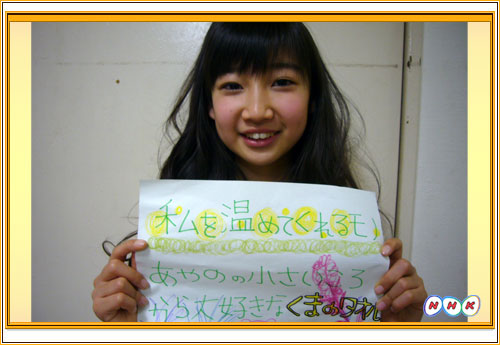 私を温めてくれるモノ
あやのの小さいころ
から大好きなくまのタオル
NHK